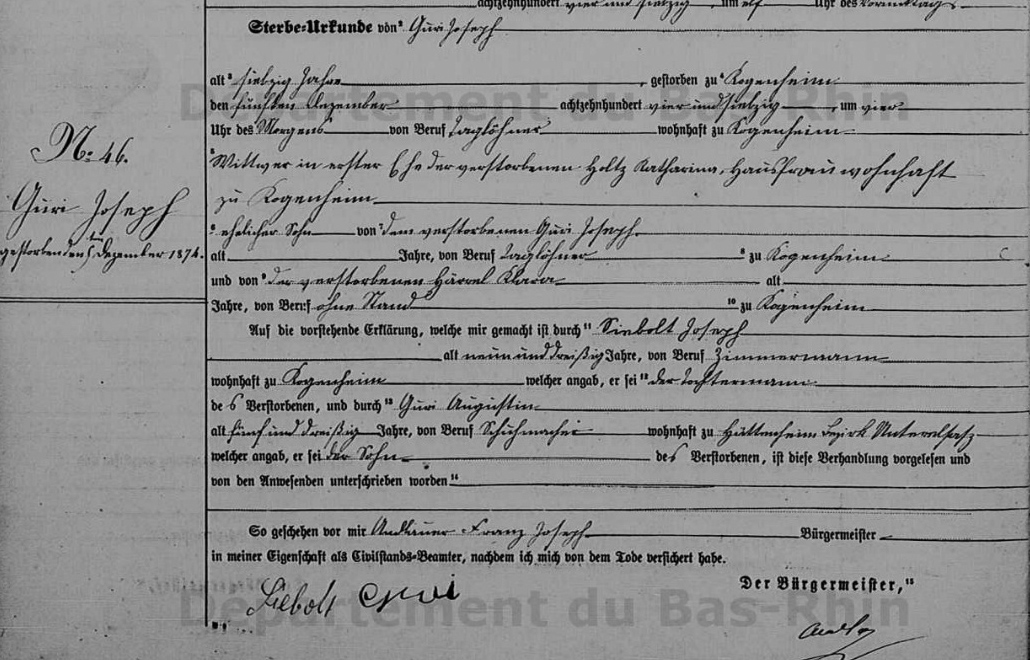 achtzehnhundert vier und siebzig, um elf Uhr des Vormittags
Sterbe-Urkunde von¹ Guri Joseph
alt² siebzig Jahre, gestorben zu⁴ Kogenheim
den fünften Dezember achtzehnhundert vier und siebzig, um vier
Uhr des Morgens von Beruf Taglöhner wohnhaft zu Kogenheim
Wittwer in erster Ehe der verstorbenen Holtz Katharina, Hausfrau wohnhaft
zu Kogenheim
ehelicher Sohn von⁷ dem verstorbenen Guri Joseph
alt Jahre, von Beruf Taglöhner ⁸ zu Kogenheim
und von⁹ der verstorbenen Härrel Klara alt
Jahre, von Beruf ohne Stand ¹⁰ zu Kogenheim
Auf die vorstehende Erklärung, welche mir gemacht ist durch¹¹ Siebolt Joseph
alt neun und dreißig Jahre, von Beruf Zimmermann
wohnhaft zu Kogenheim welcher angab, er sei¹² der Tochtermann
des Verstorbenen, und durch¹³ Guri Augustin
alt fünf und dreißig Jahre, von Beruf Schuhmacher wohnhaft zu Hüttenheim Bezirk Unterelsaß
welcher angab, er sei der Sohn des Verstorbenen, ist diese Verhandlung vorgelesen und
von den Anwesenden unterschrieben worden¹⁴
So geschehen vor mir Andlauer Franz Joseph Bürgermeister
in meiner Eigenschaft als Civilstands-Beamter, nachdem ich mich von dem Tode versichert habe.
Der Bürgermeister,¹⁵
Siebolt Guri
N⁰ 46.
Guri Joseph
gestorben den 5ten Dezember 1874.
Département du Bas-Rhin
Département du Bas-Rhin